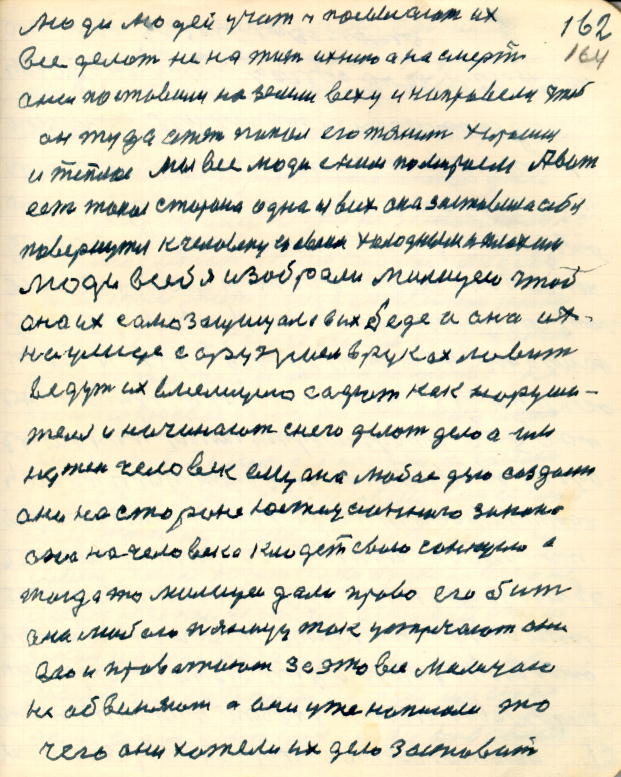 люди людей учат и посылают их
162
164
все делот не на жит ихнию а на смерть
они поставили на земли веху и направели чтоб
он туда
и теплое мы все люди с ним помираем А вот
ест такая сторона одна и вих она заставила себя
повернутся к человеку холодным и плохим
Люди всебя изобрали милицею чтоб
она их самозащищала в их беде а она их
на улице с оружием в руках ловит
ведут их в милицию садют как наруши-
теля и начинают снего делот дело а им
нужен человек ему она любое дело создаст
они на стороне закона
она на человека кладет свою санкцию а
тогда то милицеи дали право его бит
она любого пяницу так устречают они
его и провожают за это все молчат
не обвиняют а они уже написали то
чего они хотели их дело заставит